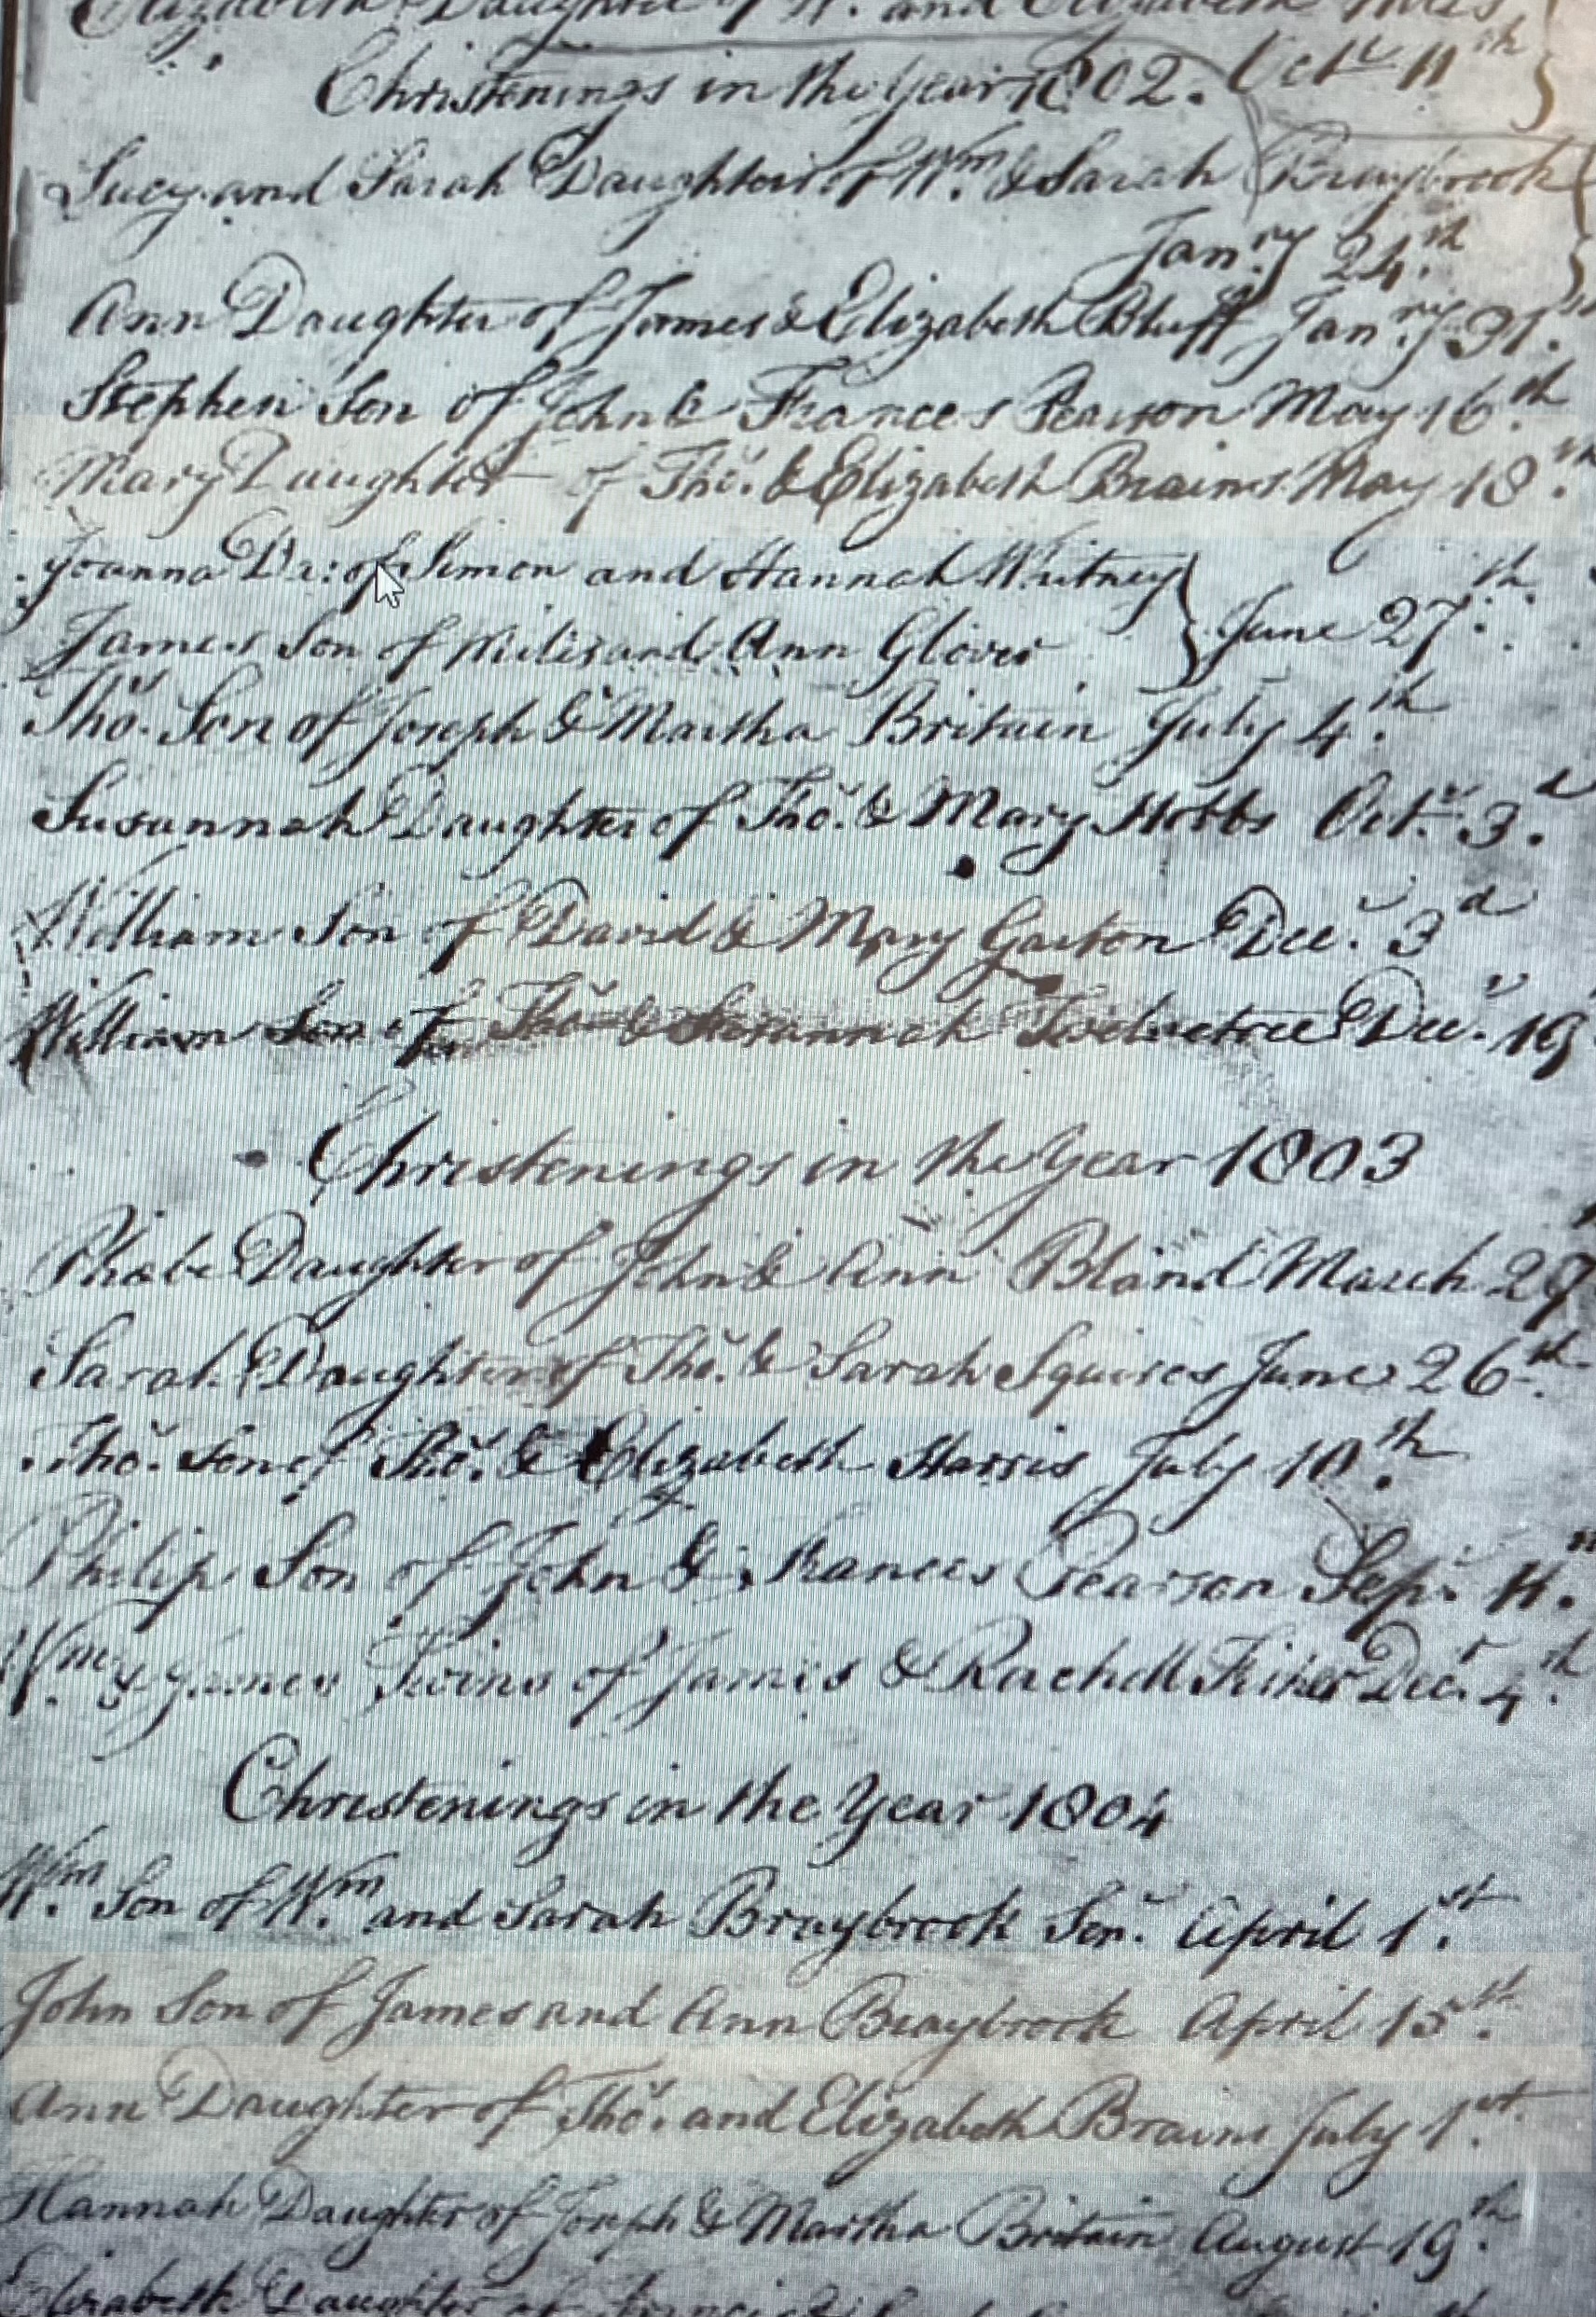 Elizabeth Daughter of W. and Elizabeth
Christenings in the Year 1802. Octr 11th
Lucy and Sarah Daughters of Wm. & Sarah Braybrook
Janry 24th
Ann Daughter of James & Elizabeth Bluff Janry 31st
Stephen Son of John & Frances Pearson May 16th
Mary Daughter of Thos. & Elizabeth Brains May 18th
Joanna Dr: of Simon and Hannah Whitney
James Son of and Ann Glover } June 27th
Thos. Son of Joseph & Martha Britain July 4th
Susannah Daughter of Thos. & Mary Hobbs Octr. 3d
William Son of David & Mary Garton Decr. 3d
William Son of Thos. & Susannah Twelvetree Decr. 19
Christenings in the Year 1803
Phœbe Daughter of John & Ann Bland March 27
Sarah Daughter of Thos. & Sarah Squires June 26th
Thos. Son of Thos. & Elizabeth Harris July 10th
Philip Son of John & Frances Pearson Sepr. 11th
Wm. & James Twins of James & Rachell Decr. 4th
Christenings in the Year 1804
Wm. Son of Wm. and Sarah Braybrook Senr. April 1st
John Son of James and Ann Braybrook April 15th
Ann Daughter of Thos. and Elizabeth Brains July 1st
Hannah Daughter of Joseph & Martha Britain August 19th
Elizabeth Daughter of